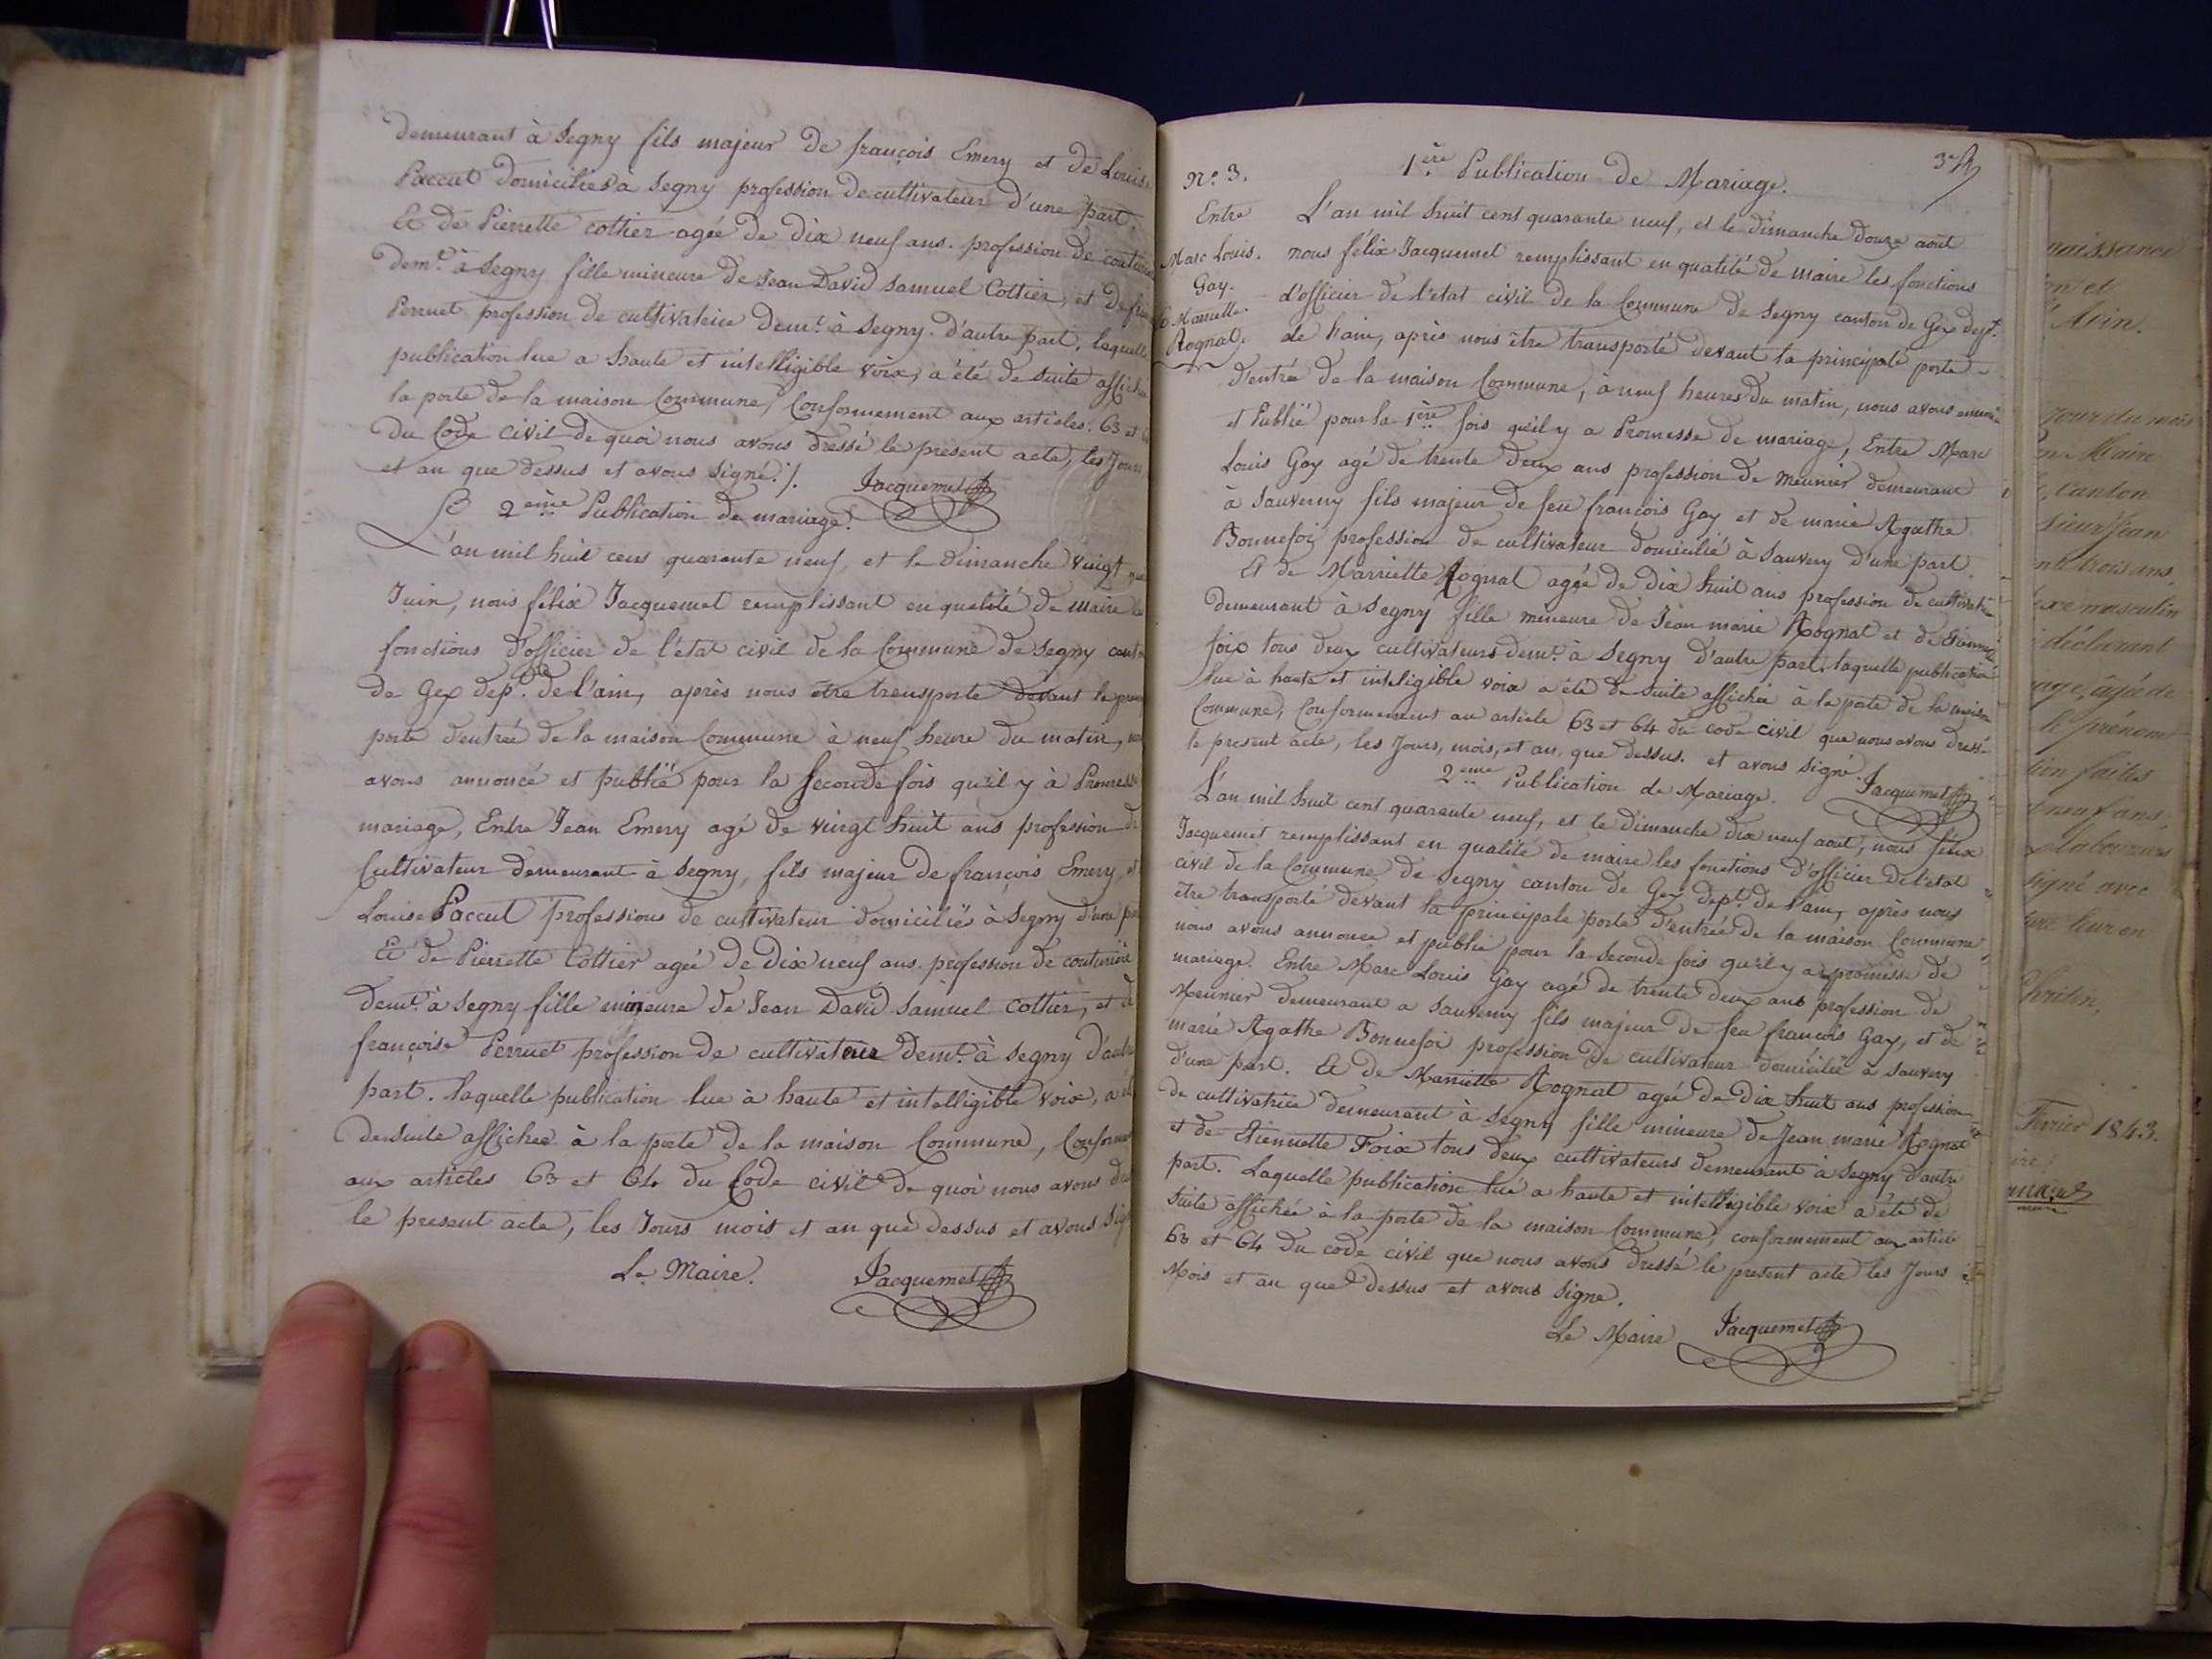 demeurant à Segny fils majeur de françois Emery et de Louise
Paccut domiciliés à Segny profession de cultivateur d'une part.
Et de Pierrette cottier agée de dix neuf ans. profession de
demt. à Segny fille mineure de Jean David Samuel Cottier, et de
Perruet profession de cultivatrice demt. à Segny. d'autre part. laquelle
publication lue a haute et intelligible voix, a été de suite
la porte de la maison Commune, Conformement aux articles. 63 et
du Code civil de quoi nous avons dressé le présent acte, les Jours
et an que dessus et avons Signé./. Jacquemet
2ème Publication de mariage.
L'an mil huit cens quarante neuf, et le dimanche vingt
Juin, nous félix Jacquemet remplissant en qualité de maire
fonctions d'officier de l'état civil de la Commune de Segny
de Gex dept. de l'ain, après nous être transporte devant la
porte d'entrée de la maison Commune à neuf heure du matin,
avons annoncé et publié pour la seconde fois qu'il y à
mariage, Entre Jean Emery agé de vingt huit ans profession de
Cultivateur demeurant à Segny, fils majeur de françois Emery, et
Louise Paccut Professions de cultivateur domiciliè à Segny d'une
Et de Pierrette Cottier agée de Dix neuf ans. profession de couturière
demt. à Segny fille mineure de Jean David Samuel cottier, et
françoise Perruet profession de demt. à Segny
part. laquelle publication lue à haute et intelligible voix, a
de suite affichee à la porte de la maison Commune,
aux articles 63 et 64 du Code civil de quoi nous avons
le present acte, les Jours mois et an que dessus et avons
Le Maire. Jacquemet
No. 3.
Entre
Marc Louis.
Gay.
Marriette.
Rognat.
1ère Publication de Mariage.
L'an mil huit cent quarante neuf, et le dimanche douze aout
nous félix Jacquemet remplissant en qualité de maire les fonctions
d'officier de l'etat civil de la Commune de Segny canton de Gex dept.
de l'ain, après nous être transporté devant la principale porte
d'entrée de la maison Commune, à neuf heures du matin, nous avons
et Publié pour la 1ère fois qu'il y a Promesse de mariage, Entre Marc
Louis Gay agé de trente deux ans profession de meunier demeurant
à Sauverny fils majeur de feu françois Gay et de marie Agathe
Bonnefoi profession de cultivateur domicilié à Sauvery d'une part.
Et de Marriette Rognat agée de dix huit ans profession de
demeurant à Segny fille mineure de Jean marie Rognat et de
foix tous deux cultivateurs demt. à Segny d'autre part. laquelle publication
lue à haute et inteligible voix a été de suite affichée à la porte de la maison
Commune, Conformement au article 63 et 64 du code civil que nous avons dressé
le present acte, les Jours, mois, et an, que dessus. et avons Signé.
2eme Publication de Mariage. Jacquemet
L'an mil huit cent quarante neuf, et le dimanche dix neuf aout, nous félix
Jacquemet remplissant en qualité de maire les fonctions d'officier de l'etat
civil de la Commune de Segny canton de Gex dept. de l'ain, après nous
être transporté devant la principale porte d'entrée de la maison Commune
nous avons annoncé et publié pour la seconde fois qu'il y a promesse de
mariage. Entre Marc Louis Gay agé de trente deux ans profession de
Meunier demeurant a Sauverny fils majeur de feu françois Gay, et de
marie Agathe Bonnefoi profession de cultivateur domicilié à Sauvery
d'une part. Et de Marriette Rognat agée de Dix huit ans profession
de cultivatrice demeurant à Segny fille mineure de Jean marie Rognat
et de Etiennette Foix tous deux cultivateurs demeurant à Segny d'autre
part. Laquelle publication lué a haute et intelligible voix a été de
suite affichée à la porte de la maison Commune, conformement au article
63 et 64 du code civil que nous avons dressé le present acte les Jours
Mois et an que dessus et avons Signe.
Le Maire Jacquemet
naissance
on et
Jour du mois
Maire
Canton
Sieur Jean
trois ans,
masculin
déclarant
agé de
le prénom
faites
neuf ans,
Laboureurs
signé avec
Fevrier 1843.